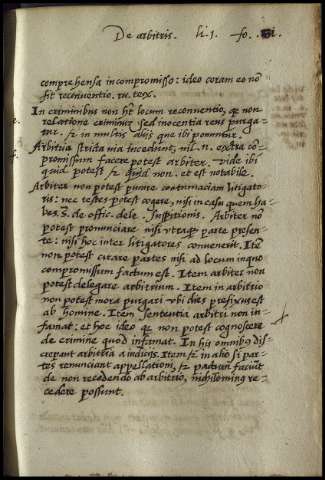 De arbitris. li. 1. fo.
comprehensa in compromisso: ideo coram eo nō
fit reconventio. ru. tex.
In criminibus non ht locum reconventio, qr non
relatione criminis sed inocentia reus purga-
tur. & in multis aliis que ibi ponuntur.
Arbitria stricta via incedūt, nil. n. extra cō-
promissum facere potest arbiter. vide ibi
quid potest & quid non. et est notabile.
Arbiter non potest punire contumaciam litigato-
ris: nec testes potest cogere, nisi in casu quem ha-
bes. S. de offic. dele. Suspitionis. Arbiter nō
potest pronunciare nisi utraque parte presen-
te: nisi hoc inter litigatores convenerit. Itē
non potest citare partes nisi ad locum in quo
compromissum factum est. Item arbiter non
potest delegare arbitrium. Item in arbitrio
non potest mora purgari ubi dies prefixus est
ab homine. Item sententia arbitri non in-
famat: et hoc ideo qr non potest cognoscere
de crimine quod infamat. In his omnibꝰ dis-
crepant arbitria a iudiciis. Item & in alio si par-
tes renunciant appellationi, & pactum faciūt
de non recedendo ab arbitrio, nichilominꝰ re-
cedere possunt.